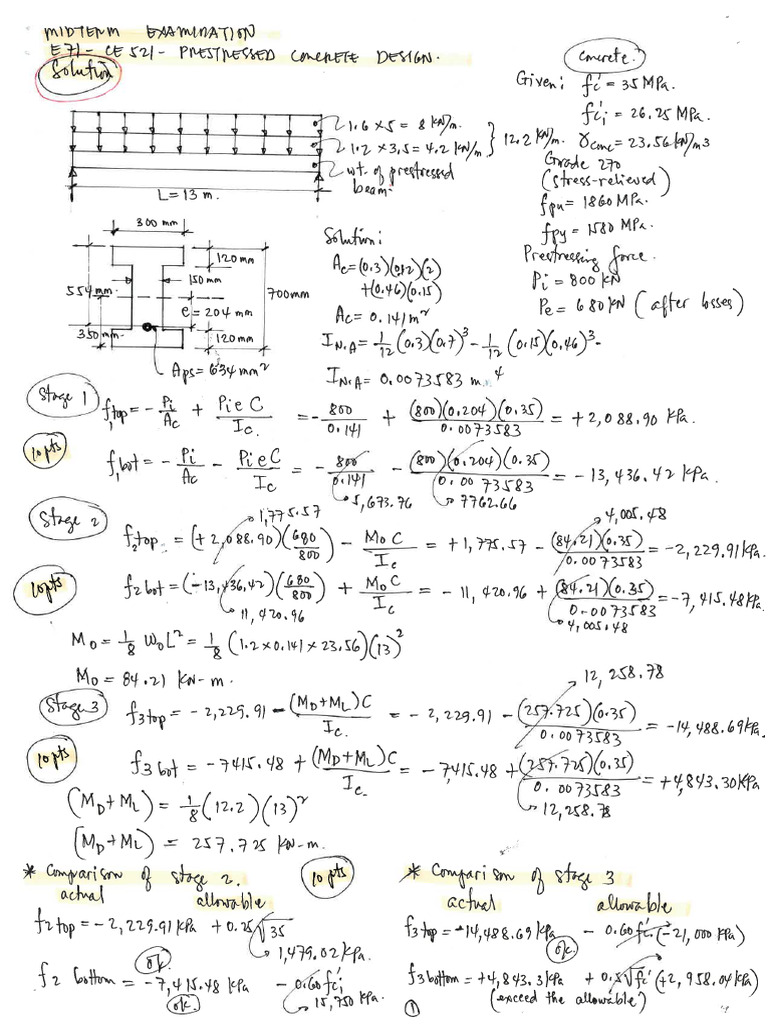 MIDTERM EXAMINATION
E71 - CE 521 - PRESTRESSED CONCRETE DESIGN.
Solution
concrete.
Given: fc' = 35 MPa.
fc'i = 26.25 MPa.
1.6 x 5 = 8 kN/m.
1.2 x 3.5 = 4.2 kN/m
} 12.2 kN/m.
wt. of prestressed beam
L = 13 m.
γconc = 23.56 kN/m3
Grade 270
(stress-relieved)
fpu = 1860 MPa.
fpy = 1580 MPa.
Prestressing force.
Pi = 800 kN
Pe = 680 kN (after losses)
300 mm
120 mm
150 mm
554 mm
700 mm
e = 204 mm
350 mm
120 mm
Aps = 634 mm²
Solution:
Ac = (0.3)(0.12)(2)
+(0.46)(0.15)
Ac = 0.141 m²
IN.A = 1/12 (0.3)(0.7)³ - 1/12 (0.15)(0.46)³
IN.A = 0.0073583 m⁴
Stage 1
f1top = - Pi/Ac + PieC/Ic = - 800/0.141 + (800)(0.204)(0.35)/0.0073583 = +2,088.90 kPa.
10 pts
f1bot = - Pi/Ac - PieC/Ic = - 800/0.141 - (800)(0.204)(0.35)/0.0073583 = -13,436.42 kPa.
5,673.76
7762.66
Stage 2
1,775.57
4,005.48
f2top = (+2,088.90)(680/800) - MoC/Ic = +1,775.57 - (84.21)(0.35)/0.0073583 = -2,229.91 kPa
10 pts
f2bot = (-13,436.42)(680/800) + MoC/Ic = -11,420.96 + (84.21)(0.35)/0.0073583 = -7,415.48 kPa.
11,420.96
4,005.48
Mo = 1/8 WoL² = 1/8 (1.2 x 0.141 x 23.56)(13)²
Mo = 84.21 kN-m.
12,258.78
Stage 3
f3top = -2,229.91 - (MD+ML)C/Ic. = -2,229.91 - (257.725)(0.35)/0.0073583 = -14,488.69 kPa
10 pts
f3bot = -7415.48 + (MD+ML)C/Ic. = -7415.48 + (257.725)(0.35)/0.0073583 = +4,843.30 kPa
12,258.78
(MD+ML) = 1/8 (12.2)(13)²
(MD+ML) = 257.725 kN-m.
* Comparison of stage 2.
10 pts
actual allowable
f2top = -2,229.91 kPa +0.25√35
1,479.02 kPa.
ok.
f2 bottom = -7,415.48 kPa - 0.60fc'i
ok.
15,750 kPa.
* Comparison of stage 3
actual allowable
f3top = -14,488.69 kPa - 0.60fc'. (-21,000 kPa)
ok
f3bottom = +4,843.3 kPa +0.5√fc' (+2,958.04 kPa)
(exceed the allowable)
1